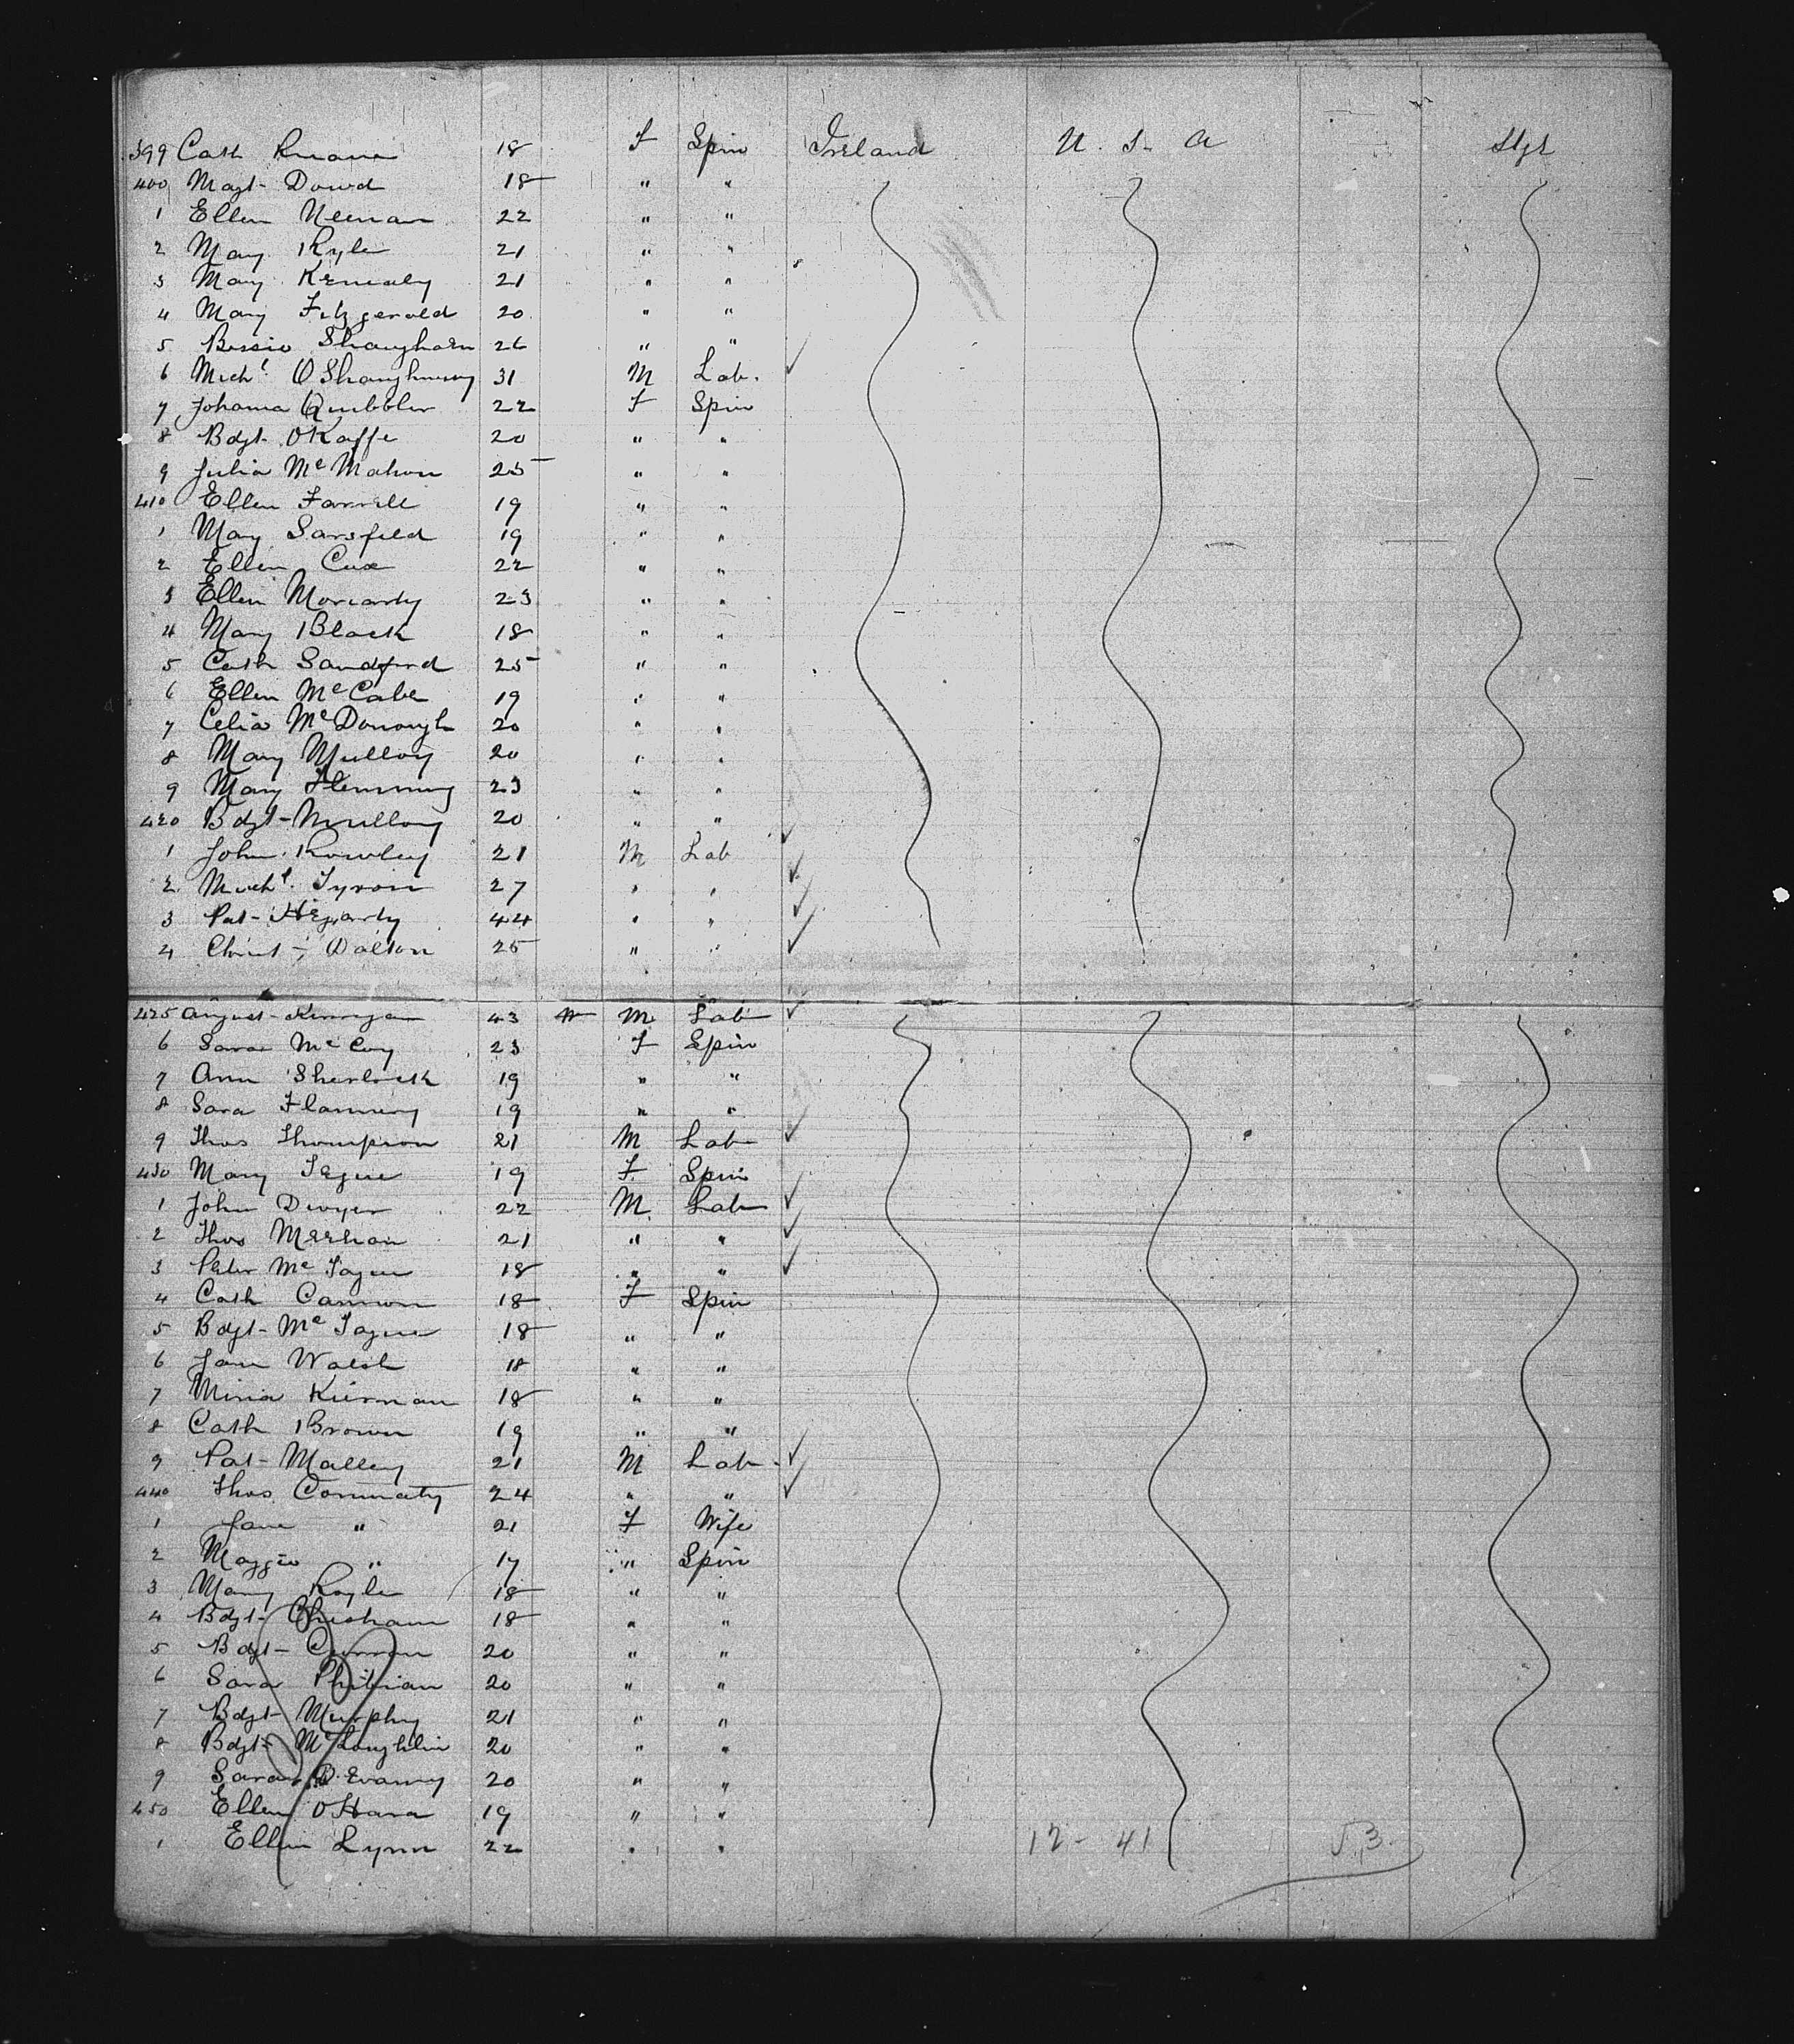 399 Cath Ruane 18 F Spin Ireland U. S. A Stge
400 Magt Dowd 18 " "
1 Ellen Neenan 22 " "
2 Mary Kyle 21 " "
3 Mary Kennealy 21 " "
4 Mary Fitzgerald 20 " "
5 Bessie 26 " "
6 Michl O'Shaughnessy 31 M Lab.
7 Johanna 22 F Spin
8 Bdgt O'Kaffe 20 " "
9 Julia McMahon 25 " "
410 Ellen Farrell 19 " "
1 Mary Sarsfeld 19 " "
2 Ellen Cux 22 " "
3 Ellen Moriarty 23 " "
4 Mary Black 18 " "
5 Cath Sandford 25 " "
6 Ellen McCabe 19 " "
7 Celia McDonough 20 " "
8 Mary Mulloy 20 " "
9 Mary Flemming 23 " "
420 Bdgt Mulloy 20 " "
1 John Rowley 21 M Lab
2 Michl Tyron 27 " "
3 Pat Hegarty 44 " "
4 Christ Dalton 25 " "
425 August Kerrigan 43 M Lab
6 Sarae McCoy 23 F Spin
7 Ann Sherlock 19 " "
8 Sara Flannery 19 " "
9 Thos Thompson 21 M Lab
430 Mary Tegue 19 F Spin
1 John Dwyer 22 M Lab
2 Thos Meehan 21 " "
3 Peter McTague 18 " "
4 Cath Cannon 18 F Spin
5 Bdgt McTague 18 " "
6 Jane Walsh 18 " "
7 Minia Kiernan 18 " "
8 Cath Brown 19 " "
9 Pat Malley 21 M Lab
440 Thos Commaty 24 " "
1 Jane " 21 F Wife
2 Maggie " 17 " Spin
3 Mary Royle 18 " "
4 Bdgt Chisham 18 " "
5 Bdgt Curran 20 " "
6 Sara Philrian 20 " "
7 Bdgt Murphy 21 " "
8 Bdgt McLoughlin 20 " "
9 Sarah 20 " "
450 Ellen O'Hara 19 " "
1 Ellen Lynn 22 " " 12 - 41 53